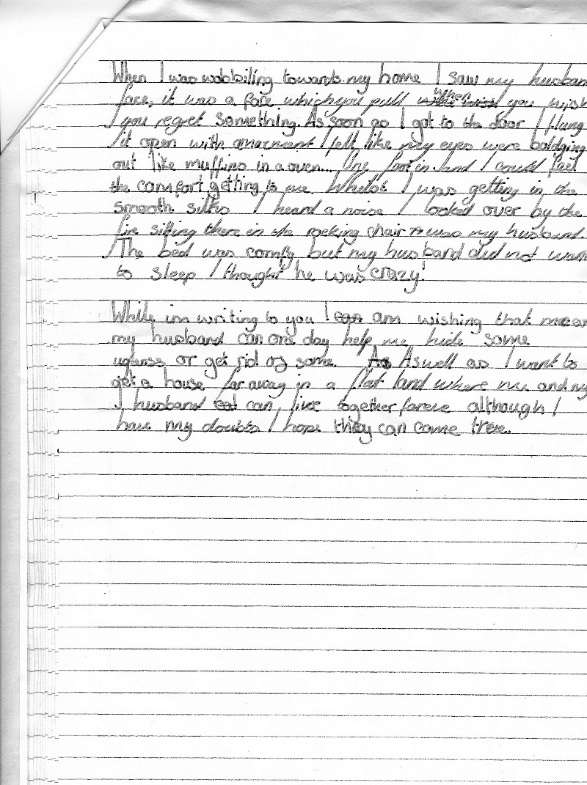 When I was wobbiling towards my home I saw my husban
face, it was a face which you pull when you wish
you regret something. As soon as I got to the door I flung
it open with amazment I felt like my eyes were baldging
out like muffins in a oven... One foot in and I could feel
the comfort getting to me. Whilst I was getting in the
smooth silks I heard a noise I looked over by the
fire sitting there in the rocking chair was my husband.
The bed was comfy but my husband did not want
to sleep I thought he was crazy!
While im writing to you I am wishing that me an
my husband can one day help me hide some
ugliness or get rid of some. Aswell as I want to
get a house far away in a flat land where me and my
husband can, live together foreve although I
have my doubts I hope they can come true.